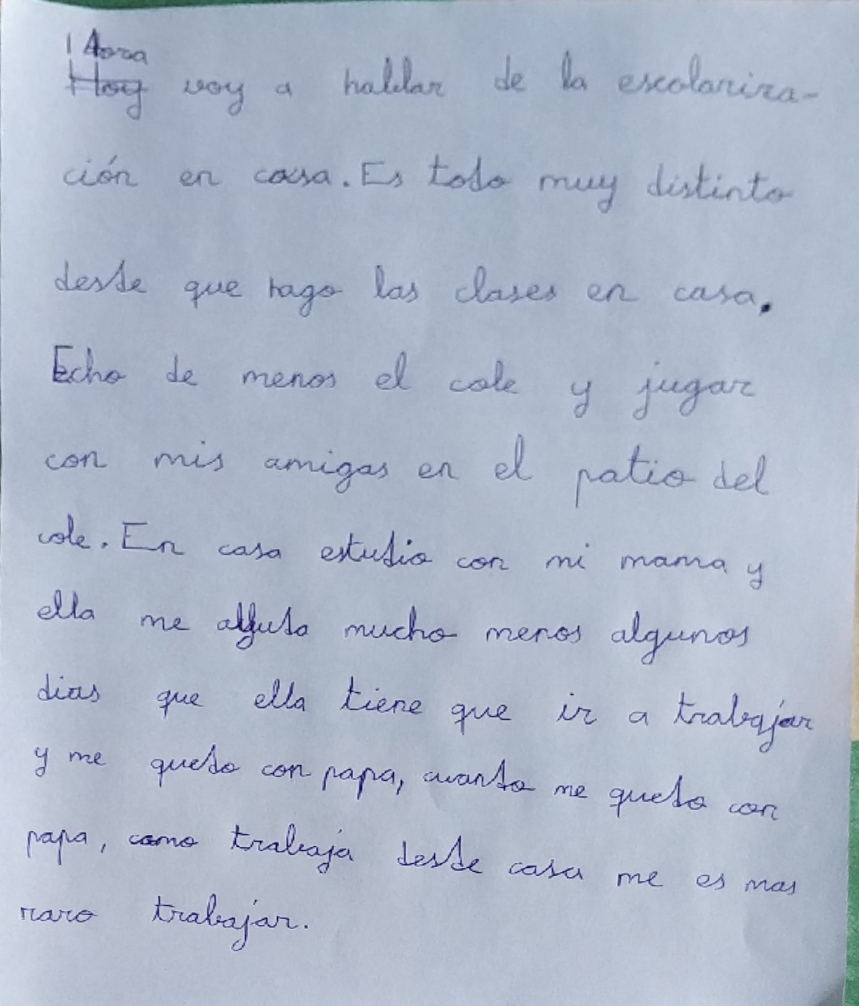 Aora
Hoy voy a hablar de la escolariza-
ción en casa. Es todo muy distinto
desde que hago las clases en casa.
Echo de menos el cole y jugar
con mis amigas en el patio del
cole. En casa estudio con mi mama y
ella me ayuda mucho menos algunos
dias que ella tiene que ir a trabajar
y me quedo con papa, cuando me quedo con
papa, como trabaja desde casa me es mas
raro trabajar.